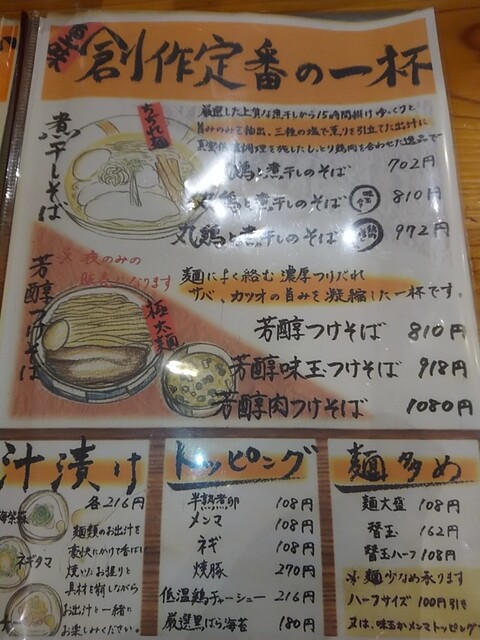 創作定番の一杯
煮干しそば
ちぢれ麺
厳選した上質な煮干しから15時間掛けゆっくりと
旨みのみを抽出、三種の塩で薫りを引立てた出汁に
真空低温調理を施したしっとり鶏肉を合わせた逸品で
鶏と煮干しのそば 702円
丸鶏と煮干しのそば 810円
丸鶏と煮干しのそば 972円
芳醇つけそば
※夜のみの
販売になります
極太麺
麺によく絡む濃厚つけだれ
サバ、カツオの旨みを凝縮した一杯です。
芳醇つけそば 810円
芳醇味玉つけそば 918円
芳醇肉つけそば 1080円
汁漬け
各216円
ネギタマ
麺類のお出汁を
豪快にかけて香ばし
焼いたお握りと
具材を崩しながら
お出汁と一緒に
お楽しみください。
トッピング
半熟煮卵 108円
メンマ 108円
ネギ 108円
焼豚 270円
低温鶏チャーシュー 216円
厳選黒ばら海苔 180円
麺多め
麺大盛 108円
替玉 162円
替玉ハーフ 108円
※麺少なめ承ります
ハーフサイズ 100円引き
又は、味玉かメンマトッピング